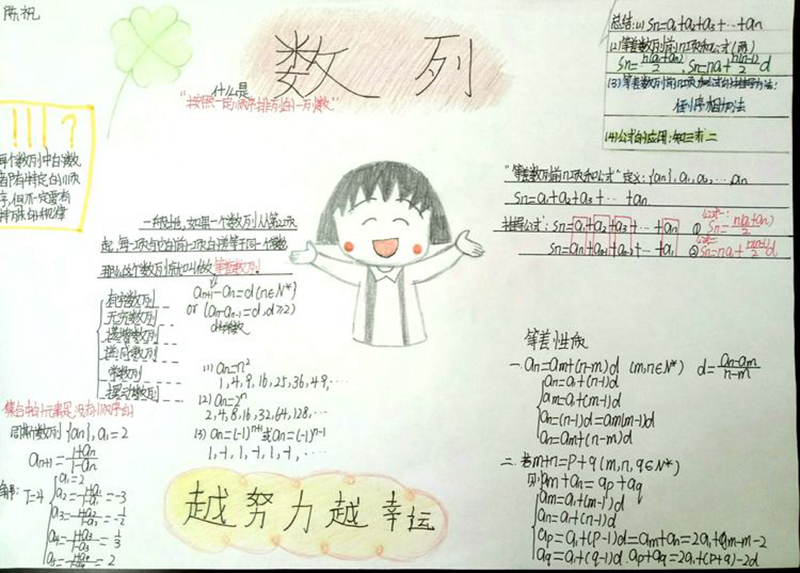 陈祝
数列
什么是
"按照一定顺序排列的一列数"
!!! ?
每个数列中的数
都有特定的顺
序,但不一定要有
特殊的规律
总结:(1) Sn=a₁+a₂+a₃+…+an
(2)等差数列前n项和公式(两)
Sn=n(a₁+an)/2 , Sn=na₁+n(n-1)/2 d
(3)等差数列前n项和公式的推导方法:
倒序相加法
(4)公式的应用:知三求二
"等差数列前n项和公式"定义:{an},a₁,a₂,…,an
Sn=a₁+a₂+a₃+…+an
推导公式:Sn=a₁+a₂+a₃+…+an ① Sn=n(a₁+an)/2
Sn=an+an-1+an-2+…+a₁ ② Sn=na₁+n(n-1)/2 d
一般地,如果一个数列从第2项
起,每一项与它的前一项的差等于同一个常数
那么这个数列就叫做等差数列
an+1-an=d(n∈N*)
or (an-an-1=d,n≥2)
d为常数
有穷数列
无穷数列
递增数列
递减数列
常数列
摆动数列
(1) an=n²
1,4,9,16,25,36,49,…
(2) an=2ⁿ
2,4,8,16,32,64,128,…
(3) an=(-1)ⁿ⁺¹或an=(-1)ⁿ⁻¹
1,-1,1,-1,1,-1,…
集合中的元素是没有顺序的
周期数列{an},a₁=2
an+1=1+an/1-an
T=4
a₁=2
a₂=1+a₁/1-a₁=-3
a₃=1+a₂/1-a₂=-1/2
a₄=1+a₃/1-a₃=1/3
a₅=1+a₄/1-a₄=2
等差性质
一.an=am+(n-m)d (m,n∈N*) d=an-am/n-m
an=a₁+(n-1)d
am=a₁+(m-1)d
an=am+(n-m)d
二.若m+n=p+q(m,n,q∈N*)
则am+an=ap+aq
am=a₁+(m-1)d
an=a₁+(n-1)d
ap=a₁+(p-1)d
aq=a₁+(q-1)d.ap+aq=2a₁+(p+q)-2d
越努力越幸运